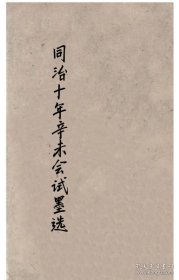 同治十年辛未会试墨选